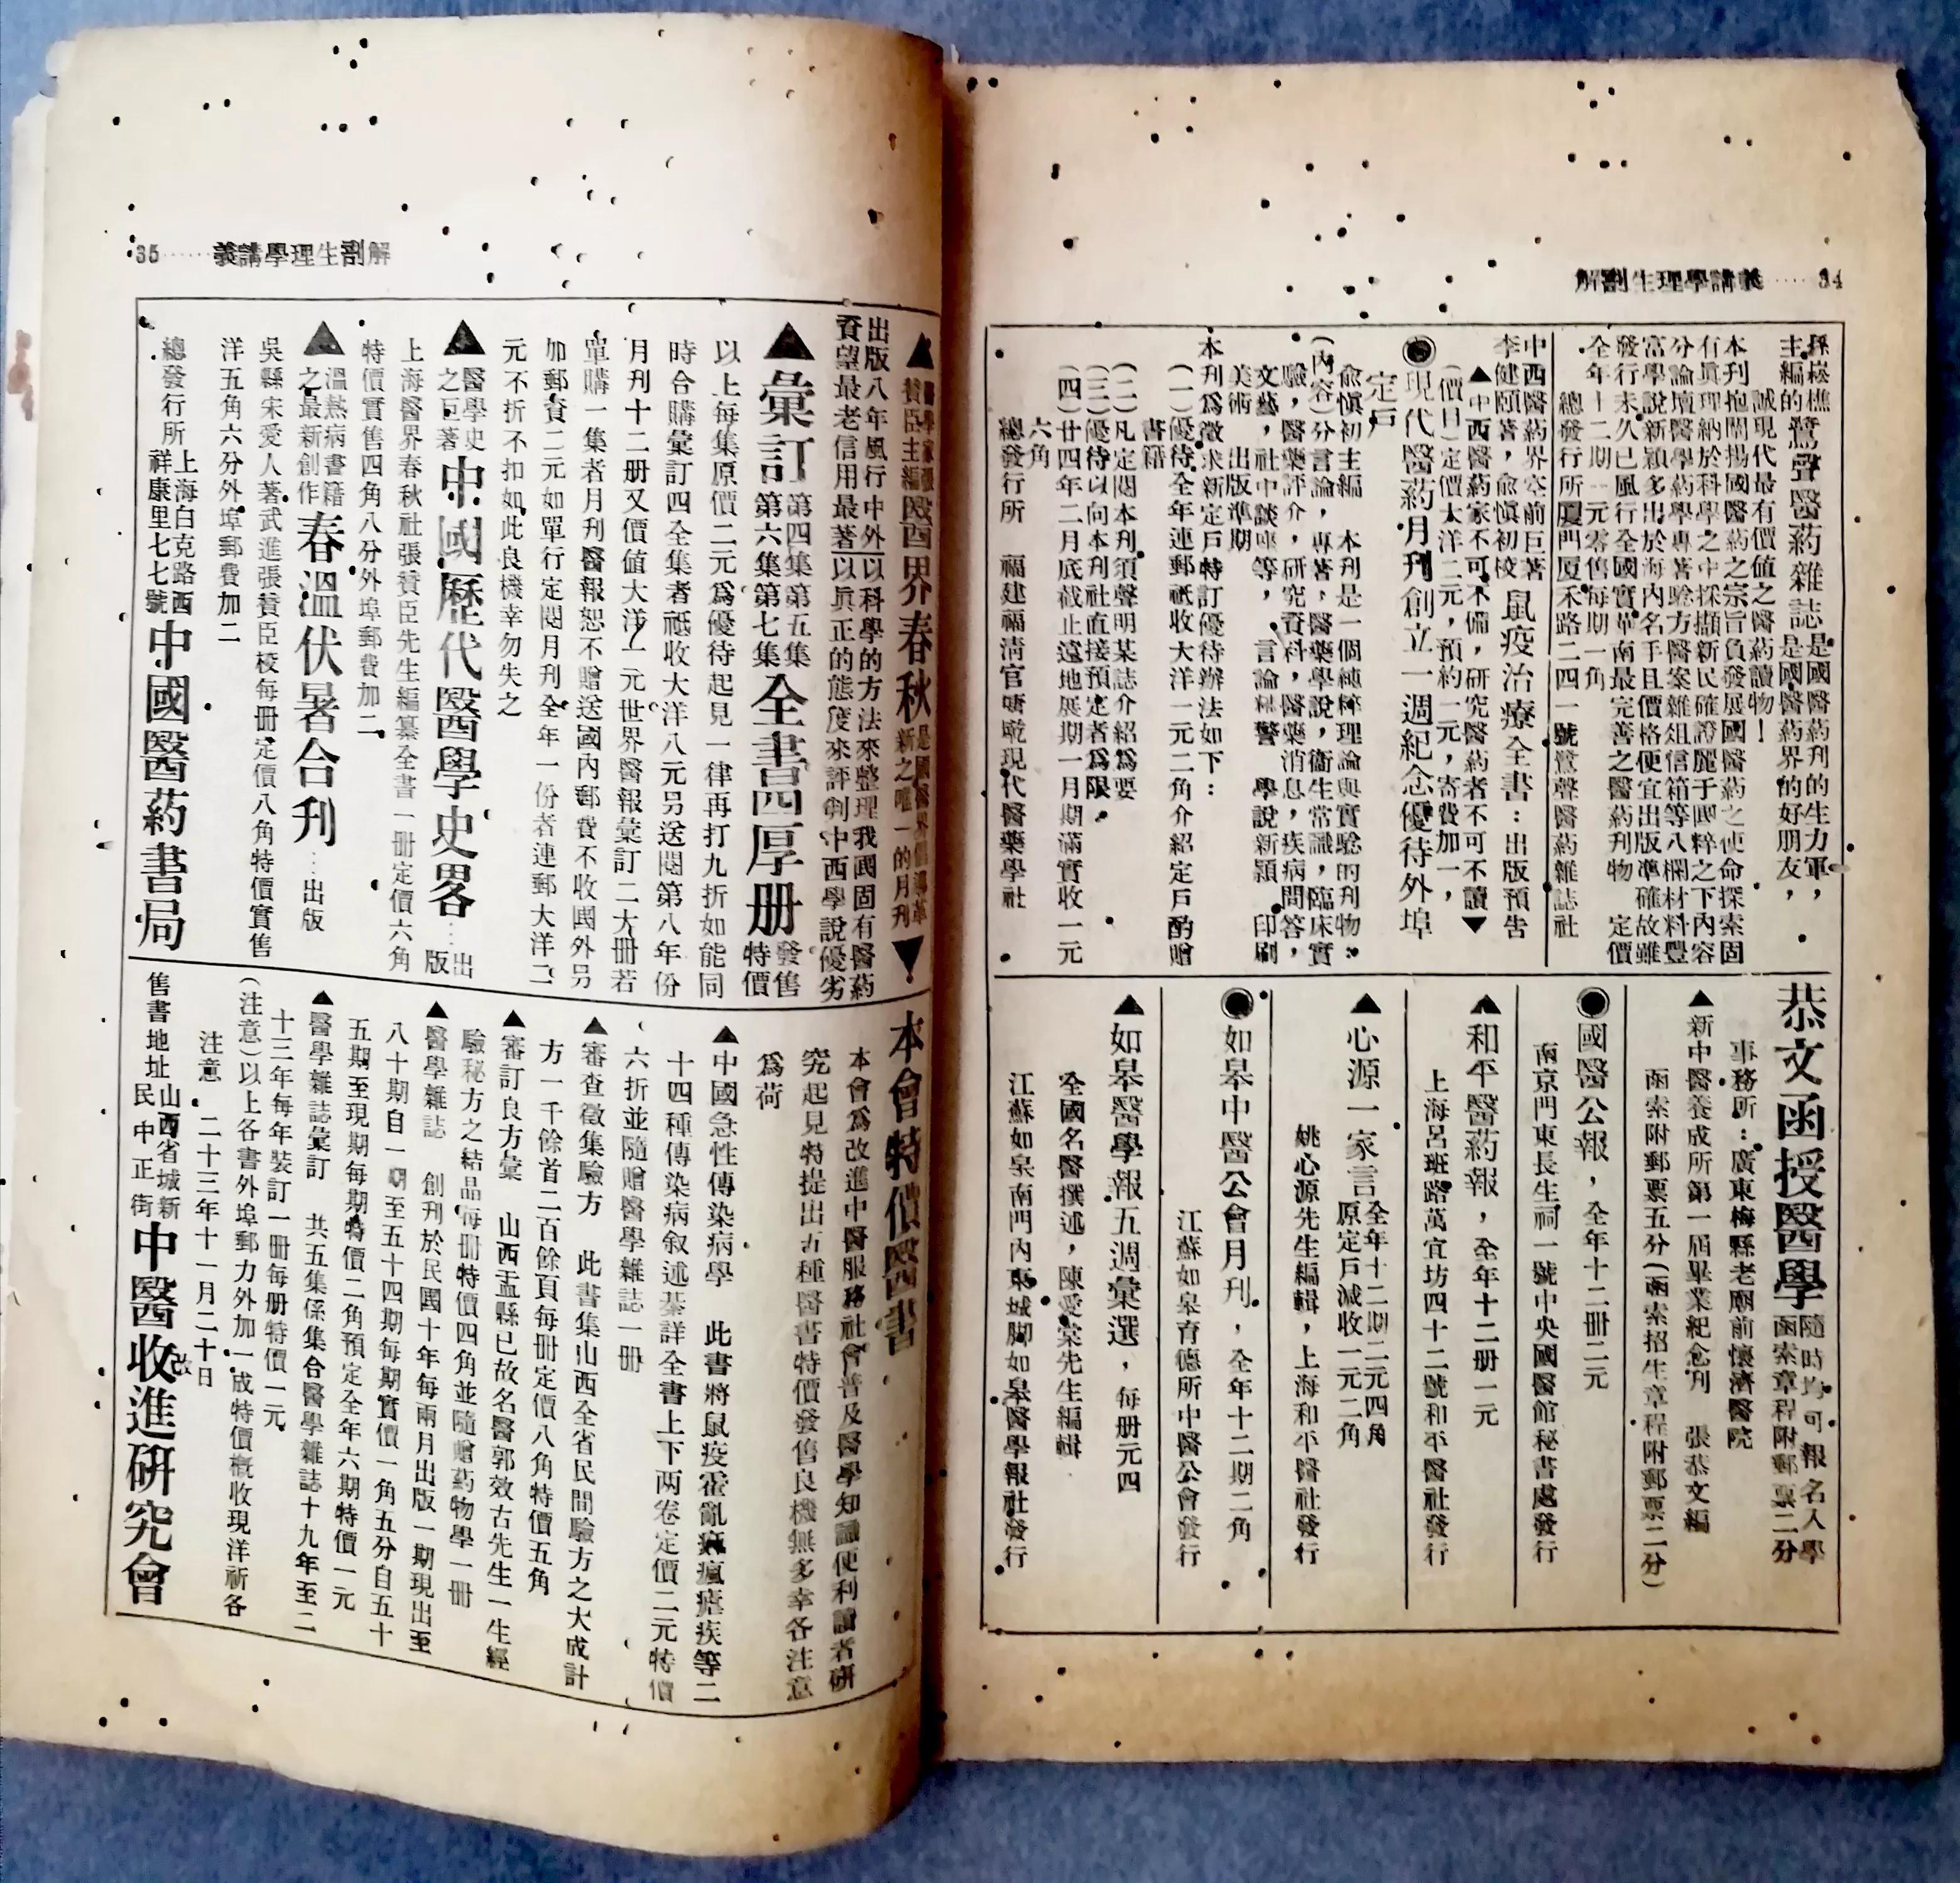 解剖生理學講義……34
孫崧樵
主編的
鷺聲醫葯雜誌
是國醫葯刊的生力軍，
是國醫葯界的好朋友，
誠現代最有價值之醫葯讀物！
本刊抱闡揚國醫葯之宗旨負發展國醫葯之使命探索固
有眞理納於科學之中採擷新民確證麗于國粹之下內容
分論壇醫學葯學專著騐方醫案雜俎信箱等八欄材料豐
富學說新颖多出於海內名手且價格便宜出版準確故雖
發行未久已風行全國實革南最完善之醫葯刊物　定價
全年十二期一元零售每期一角
總發行所廈門厦禾路二四一號鷺聲醫葯雜誌社
中西醫葯界空前巨著
李健頤著，俞愼初校
鼠疫治療全書：出版預告
▲中西醫葯家不可不備，研究醫葯者不可不讀▼
（價目）定價大洋二元，預約一元，寄費加一，
◉現代醫葯月刊創立一週紀念優待外埠
定戶
俞愼初主編　本刊是一個純粹理論與實騐的刊物：
（內容）分言論，專著，醫藥學說，衞生常識，臨床實
驗，醫藥評介，研究資料，醫藥消息，疾病問答，
文藝，社中談座等，言論精警　學說新頴　印刷
美術　出版準期
本刊爲徵求新定戶特訂優待辦法如下：
（一）優待全年連郵祇收大洋一元二角介紹定戶酌贈
書籍
（二）凡定閱本刊須聲明某誌介紹爲要
（三）優待以向本刊社直接預定者爲限
（四）廿四年二月底截止遠地展期一月期滿實收一元
六角
總發行所　福建福淸官塘乾現代醫藥學社
恭文函授醫學
隨時均可報名入學
函索章程附郵票二分
事務所：廣東梅縣老廟前懷濟醫院
▲新中醫養成所第一屆畢業紀念刊　張恭文編
函索附郵票五分（函索招生章程附郵票二分）
◉國醫公報，全年十二冊二元
南京門東長生祠一號中央國醫館秘書處發行
▲和平醫葯報，全年十二册一元
上海呂班路萬宜坊四十二號和平醫社發行
▲心源一家言
全年十二期二元四角
原定戶減收一元二角
姚心源先生編輯，上海和平醫社發行
◉如皋中醫公會月刊，全年十二期二角
江蘇如皋育德所中醫公會發行
▲如皋醫學報五週彙選，每册元四
全國名醫撰述，陳愛棠先生編輯
江蘇如皋南門內東城脚如皋醫學報社發行
解剖生理學講義……35
▲醫學家張
贊臣主編
醫界春秋
是國醫界倡導革
新之唯一的月刊▼
出版八年風行中外以科學的方法來整理我國固有醫葯
資望最老信用最著以眞正的態度來評判中西學說優劣
▲彙訂
第四集第五集
第六集第七集
全書四厚册
發售
特價
以上每集原價二元爲優待起見一律再打九折如能同
時合購彙訂四全集者祗收大洋八元另送閱第八年份
月刊十二册又價值大洋一元世界醫報彙訂二大册若
單購一集者月刊醫報恕不贈送國內郵費不收國外另
加郵資二元如單行定閱月刊全年一份者連郵大洋二
元不折不扣如此良機幸勿失之
▲醫學史
之巨著
中國歷代醫學史畧…出
版
上海醫界春秋社張贊臣先生編纂全書一册定價六角
特價實售四角八分外埠郵費加二
▲溫熱病書籍
之最新創作
春溫伏暑合刋…出版
吳縣宋愛人著武進張贊臣校每册定價八角特價實售
洋五角六分外埠郵費加二
總發行所
上海白克路西
祥康里七七號
中國醫葯書局
本會特價醫書
本會爲改進中醫服務社會普及醫學知識便利讀者研
究起見特提出五種醫書特價發售良機無多幸各注意
爲荷
▲中國急性傳染病學　此書將鼠疫霍亂痳瘋瘧疾等二
十四種傳染病叙述綦詳全書上下两卷定價二元特價
六折並隨贈醫學雜誌一册
▲審查徵集騐方　此書集山西全省民間驗方之大成計
方一千餘首二百餘頁每册定價八角特價五角
▲審訂良方彙　山西盂縣已故名醫郭效古先生一生經
驗秘方之結品每册特價四角並隨贈葯物學一册
▲醫學雜誌　創刊於民國十年每兩月出版一期現出至
八十期自一期至五十四期每期實價一角五分自五十
五期至現期每期特價二角預定全年六期特價一元
▲醫學雜誌彙訂　共五集係集合醫學雜誌十九年至二
十三年每年裝訂一册每册特價一元
（注意）以上各書外埠郵力外加一成特價概收現洋祈各
注意　二十三年十一月二十日
售書地址
山西省城新
民中正街
中醫改進研究會
收